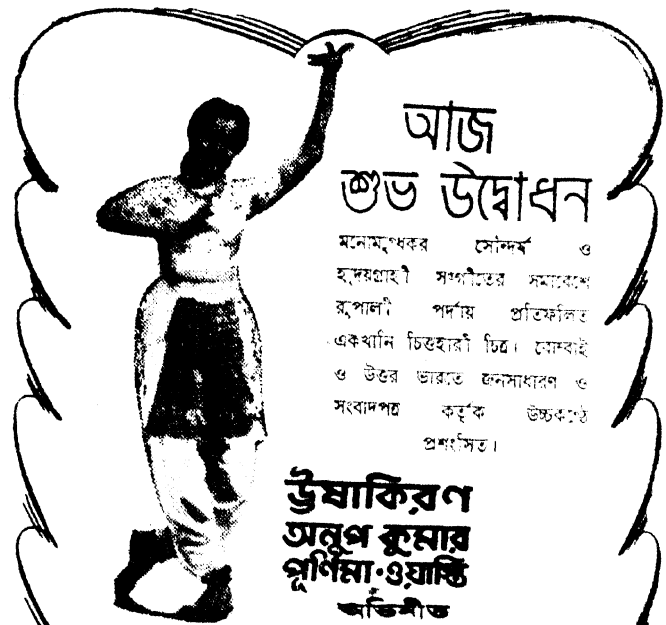 আজ
শুভ উদ্বোধন
মনোমুগ্ধকর সৌন্দর্য ও
হৃদয়গ্রাহী সংগীতের সমাবেশে
রূপালী পর্দায় প্রতিফলিত
একখানি চিত্তহারী চিত্র। বোম্বাই
ও উত্তর ভারতে জনসাধারণ ও
সংবাদপত্র কর্তৃক উচ্চকণ্ঠে
প্রশংসিত।
ঊষাকিরণ
অনুপ কুমার
পূর্ণিমা·ওয়াস্তি
অভিনীত